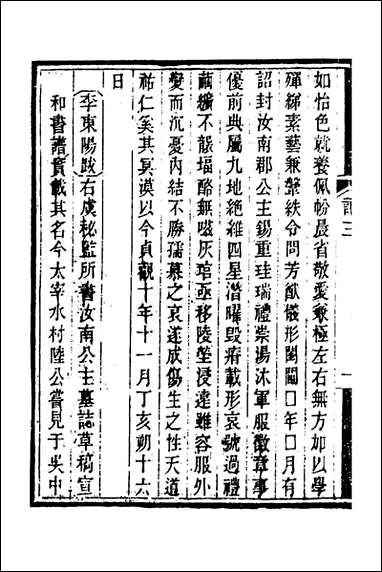 如怡色就養佩帉晨省敬愛兼極左右無方加以學
殫綈素藝兼鞶紩令問芳猷儀形閨閫□年□月有
詔封汝南郡公主錫重珪瑞禮崇湯沐軍服徽章事
優前典屬九地絕維四星潛曜毀瘠載形哀號過禮
繭纊不襲塩酪無嗞灰琯亟移陵塋浸遠雖容服外
變而沉憂內結不勝孺慕之哀遂成傷生之性天道
祐仁奚其冥漠以今貞觀十年十一月丁亥朔十六
日
李東陽跋右虞秘監所書汝南公主墓誌草稿宣
和書譜實載其名今太宰水村陸公嘗見于吳中